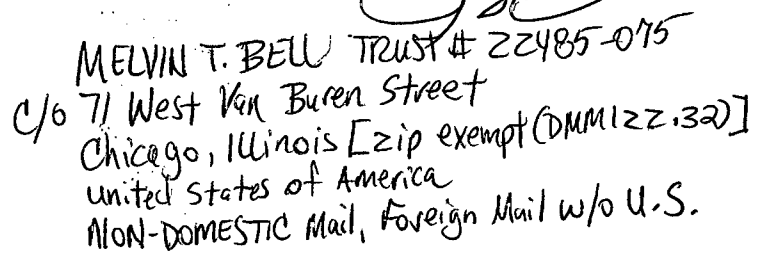 MELVIN T. BELL TRUST # 22485-075
C/o 71 West Van Buren Street
Chicago, Illinois [zip exempt (DMM122.32)]
united States of America
NON-DOMESTIC Mail, Foreign Mail w/o U.S.